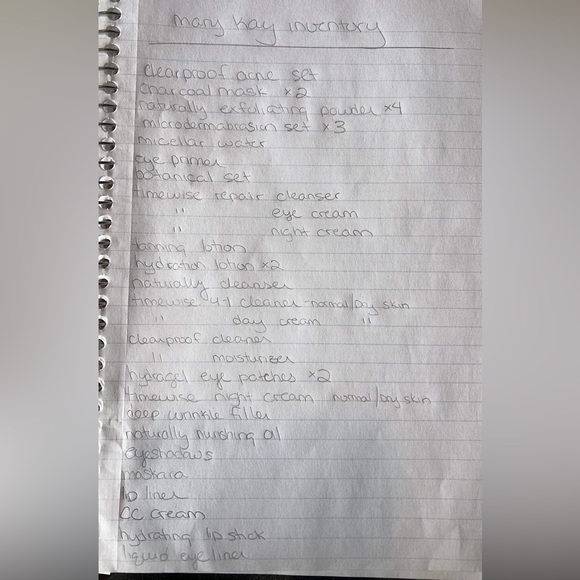 mary kay inventory
clearproof acne set
charcoal mask x2
naturally exfoliating powder x4
microdermabrasion set x3
micellar water
eye primer
botanical set
timewise repair cleanser
" eye cream
" night cream
tanning lotion
hydration lotion x2
naturally cleanser
timewise 4-1 cleaner - normal/Dry skin
" day cream "
clearproof cleaner
" moisturizer
hydrogel eye patches x2
timewise night cream normal/Dry skin
deep wrinkle filler
naturally nurshing oil
eyeshadows
maskara
lip liner
CC cream
hydrating lip stick
liquid eyeliner